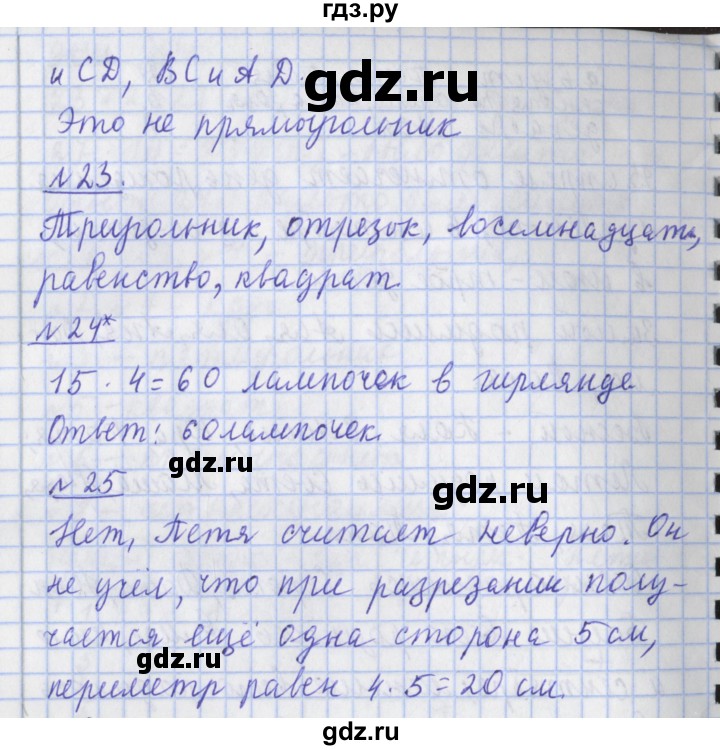 гдз.ру
и CD, BC и AD.
gdz.ru
Это не прямоугольник
№23.
Треугольник, отрезок, восемнадцать,
равенство, квадрат.
№24*
15 · 4 = 60 лампочек в гирлянде
Ответ: 60 лампочек.
gdz.ru
№25
gdz.ru
Нет, Петя считает неверно. Он
не учёл, что при разрезании полу-
чается ещё одна сторона 5 см,
gdz.ru
периметр равен 4 · 5 = 20 см.
gdz.ru